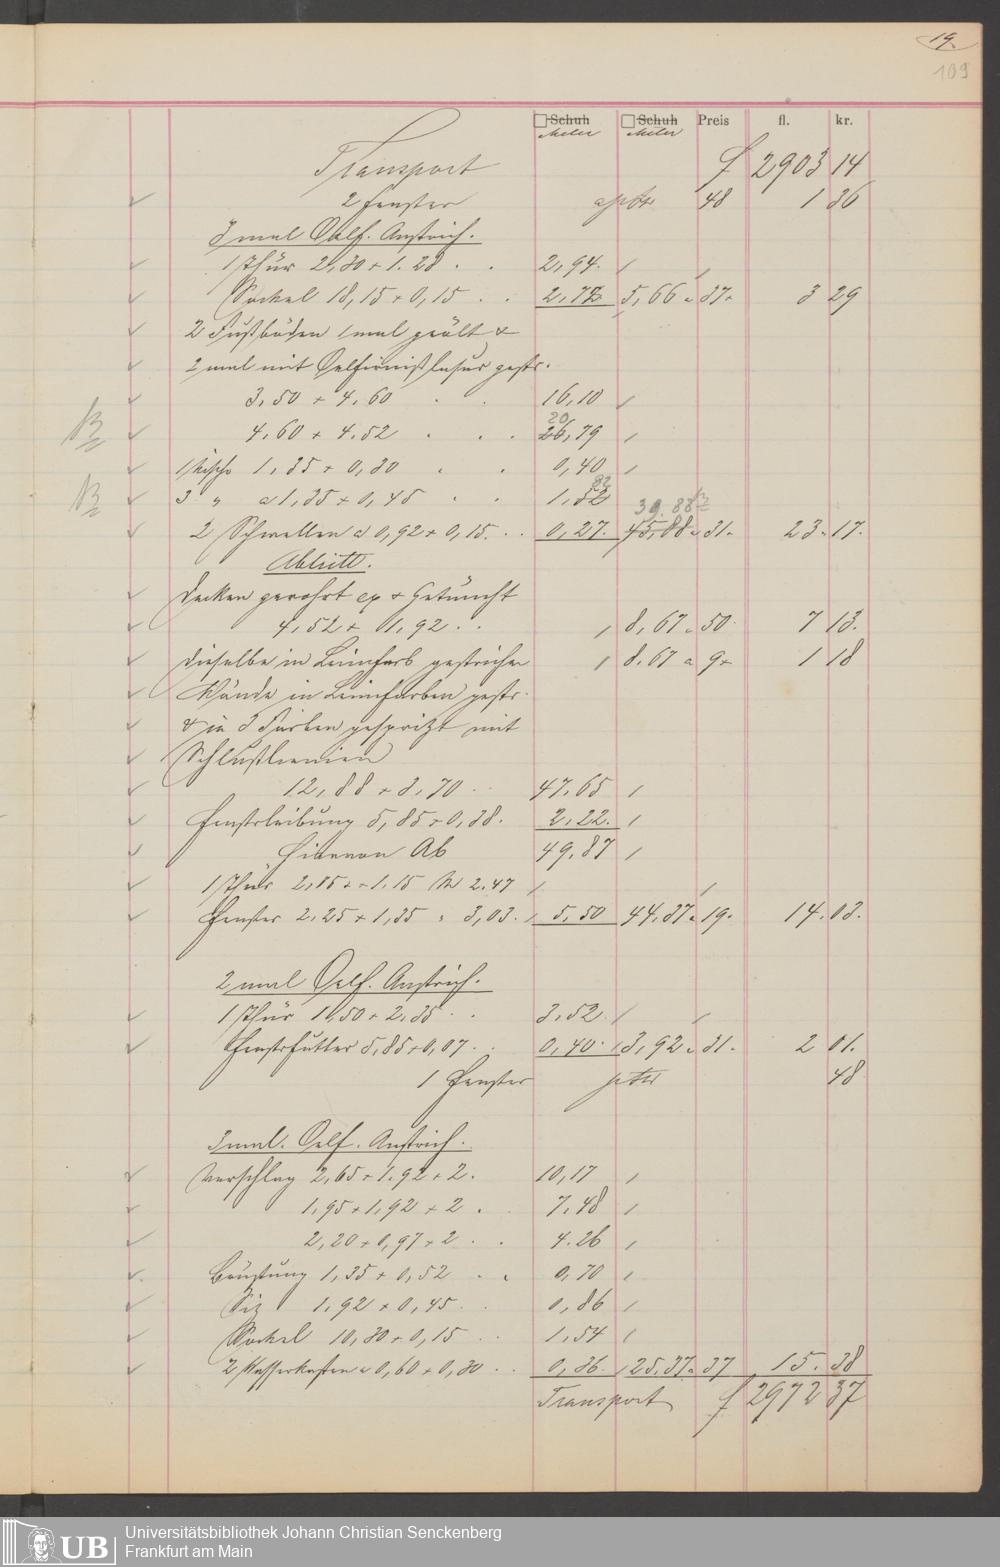 19.
109
□ Schuh □ Schuh Preis fl. kr.
Meter Meter
Transport f 2903 14
2 Fenster apter 48 1 36
3 mal Oelf. Anstrich.
1 Thür 2,30 + 1.28 . . 2,94.
Sockel 18,15 + 0,15 . . 2,72 5,66 a 37 3 29
2 Fußböden 1 mal geölt &
2 mal mit Oelfirnißlasur gestr.
3,50 + 4,60 . . 16,10
20
B 4,60 + 4,52 . . . 26,79
1 Nische 1,35 + 0,30 . . 0,40
82
B 3 " a 1,35 + 0,45 . . 1,52
39.88
2 Schwellen a 0,92 + 0,15. . . 0,27. 45,88 a 31. 23. 17.
Abtritt.
Decken gerohrt & Getüncht
4,52 + 1,92 . . 8,67 a 50 7 13.
dieselbe in Leimfarb gestrichen 8.67 a 9 1 18
Wände in Leimfarben gestr.
& in 3 Farben gespritzt mit
Schlußlienien
12,88 + 3,70 . 47,65
Fensterleibung 5,85 + 0,38. 2,22.
Hievon Ab 49,87
1 Thür 2,15 + 1.15 M 2.47
Fenster 2,25 + 1,35 " 3,03. 5,50 44,37 a 19. 14. 03.
2 mal Oelf. Anstrich.
1 Thür 1,50 + 2,35 . . 3,52.
Fensterfutter 5,85 + 0,07 . . 0,40. 3,92 a 31. 2 01.
1 Fenster pter 48
3 mal. Oelf. Anstrich.
Verschlag 2,65 + 1.92 + 2. 10,17
1,95 + 1,92 + 2 . 7,48
2,20 + 0,97 + 2 . . 4.26
Brüstung 1,35 + 0,52 . . 0,70
Siz 1,92 + 0,45 . . 0,86
Sockel 10,30 + 0,15 . . 1,54
2 Wasserkasten a 0,60 + 0,30 . . 0,36. 25.37 a 37 15. 38
Transport f 2972 37
UB
Universitätsbibliothek Johann Christian Senckenberg
Frankfurt am Main